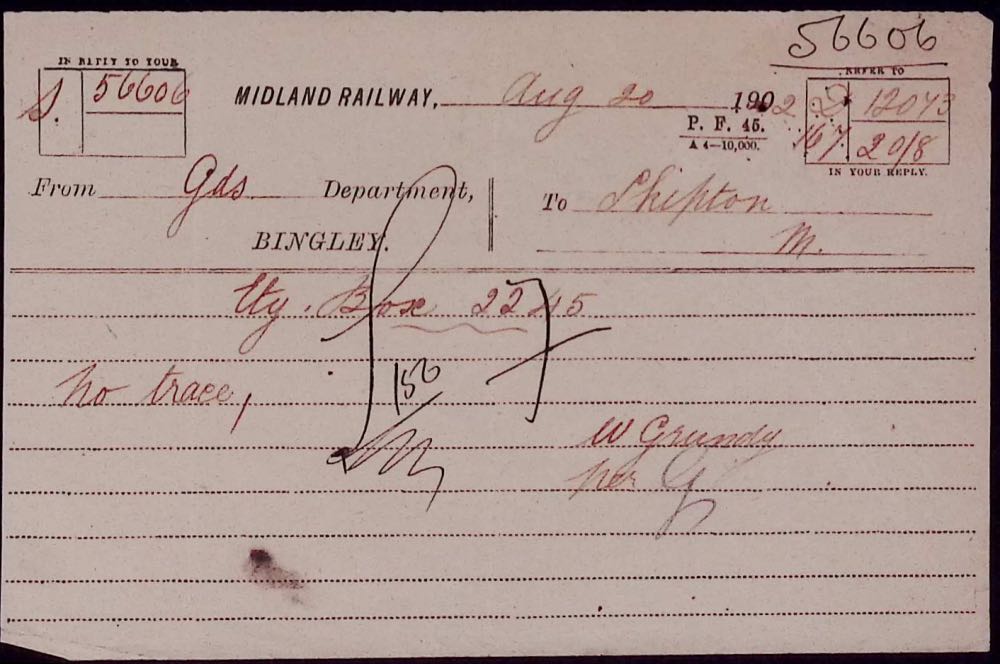 56606
IN REPLY TO YOUR
REFER TO
S. 56606
MIDLAND RAILWAY, Aug 20 1902
12073
P. F. 45.
A 4—10,000.
167 20/8
IN YOUR REPLY.
From Gds Department,
To Skipton
BINGLEY.
M.
Ety. Box 2245
No trace,
156
W Grundy
per G